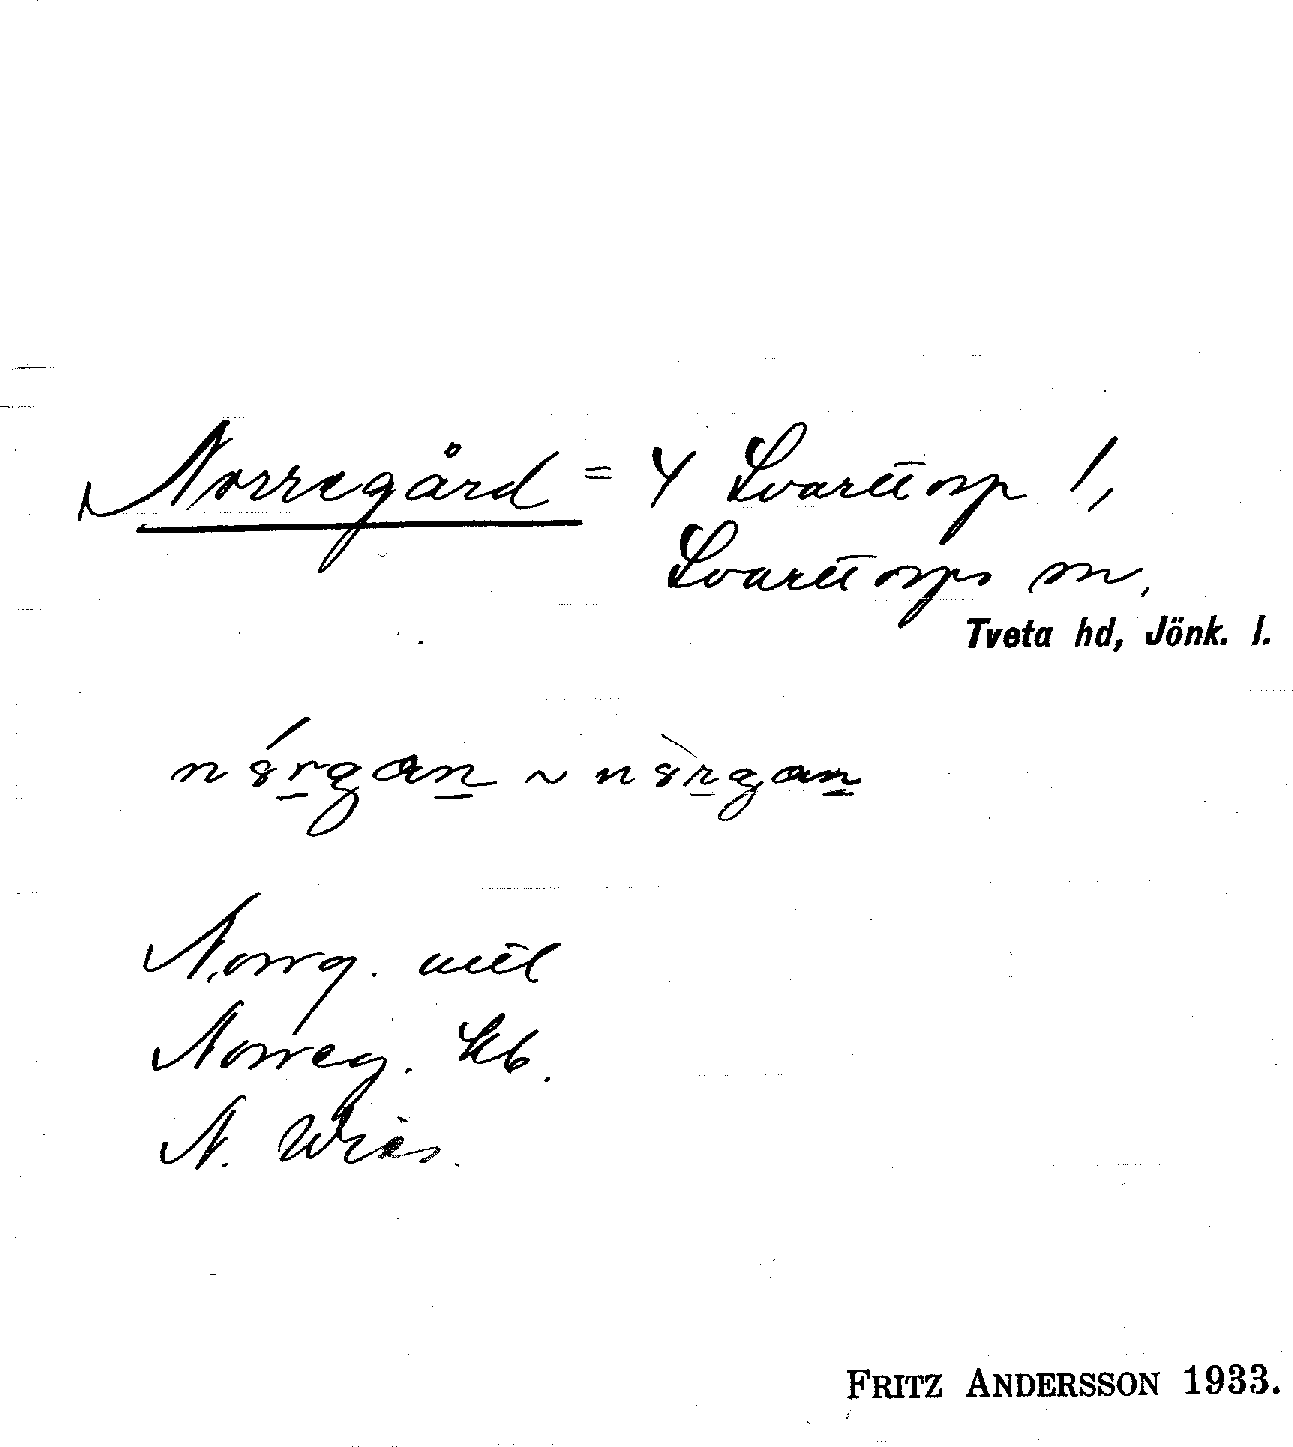 Norregård = 4 Svarttorp 1,
Svarttorps sn.
Tveta hd, Jönk. l.
Norrg. uttl
Norreg. kb.
N. Wies.
FRITZ ANDERSSON 1933.